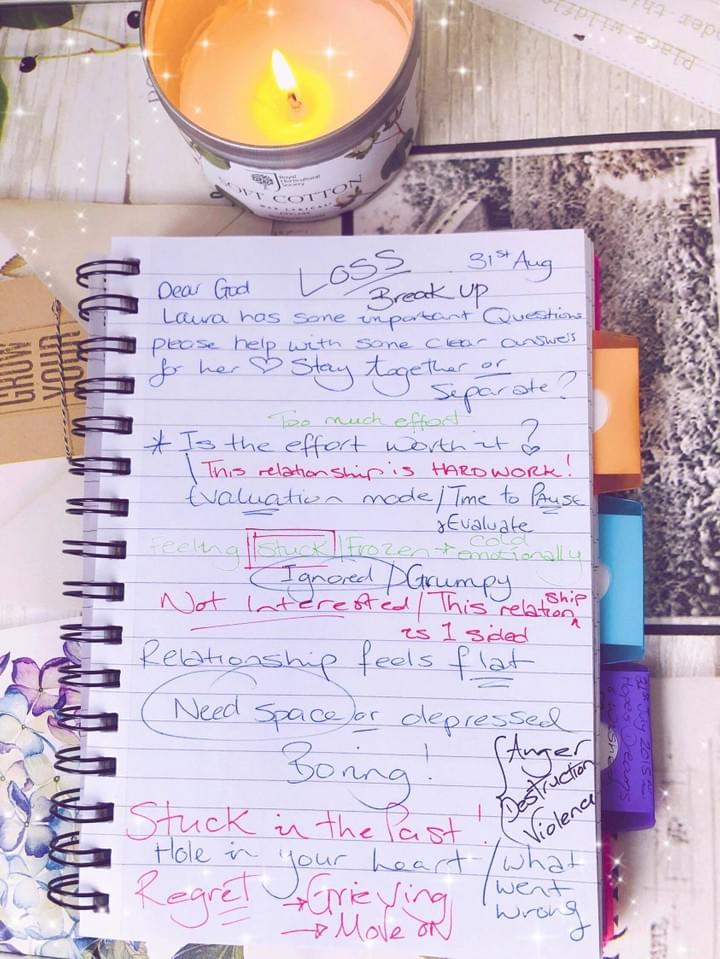 Royal Horticultural Society
SOFT COTTON
WAX LYRICAL
GROW YOUR
Place wildfl
LOSS
31st Aug
Dear God
Break up
Laura has some important Questions
please help with some clear answers
for her ♡ Stay together or
Separate?
Too much effort
* Is the effort worth it?
This relationship is HARDWORK!
Evaluation mode / Time to PAUSE
& Evaluate
Feeling Stuck | Frozen → cold emotionally
Ignored / Grumpy
Not Interested / This relationship
is 1 sided
Relationship feels flat
Need space or depressed
Boring!
Anger
Destruction
Violence
Stuck in the Past!
Hole in your heart / what
went
wrong
Regret → Grieving
→ Move on
31st July 2015
Hopes Dreams
& Wishes